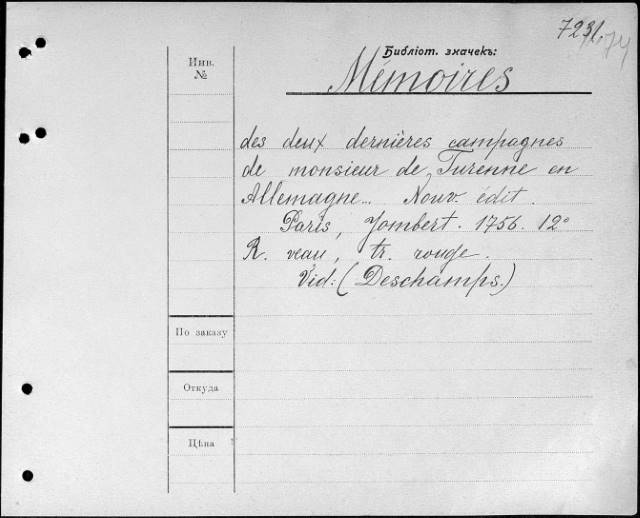 7231.
74
Библіот. значекъ:
Инв.
№
Mémoires
des deux dernières campagnes
de monsieur de Turenne en
Allemagne... Nouv. édit.
Paris, Jombert. 1756. 12°
R. veau, tr. rouge.
Vid: (Deschamps.)
По заказу
Откуда
Цѣна